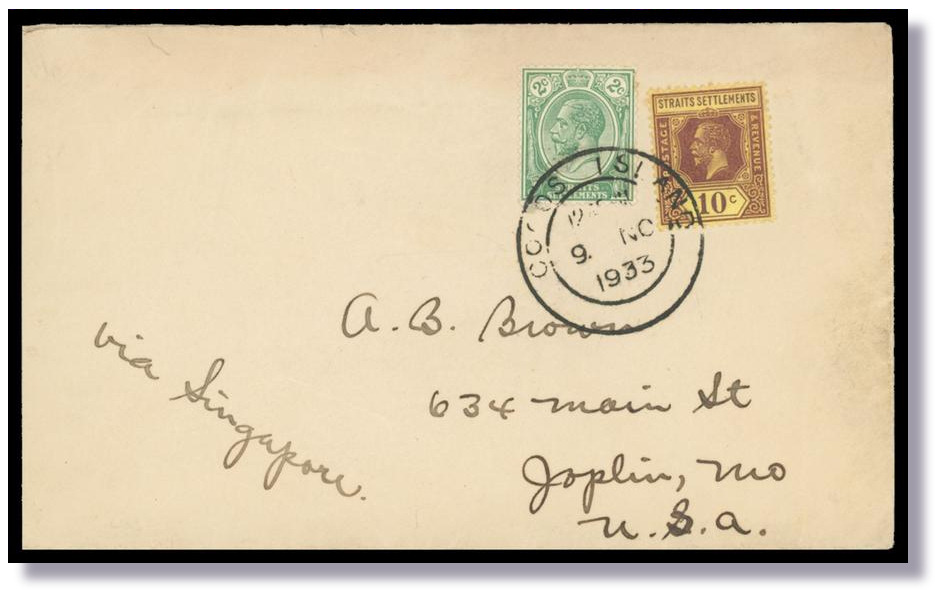 2c 2c
STRAITS SETTLEMENTS
POSTAGE & REVENUE
SETTLEMENTS
10 c
COCOS ISLAND
9 NO
1933
A. B. Brown
via Singapore.
634 Main St
Joplin, Mo
U.S.A.